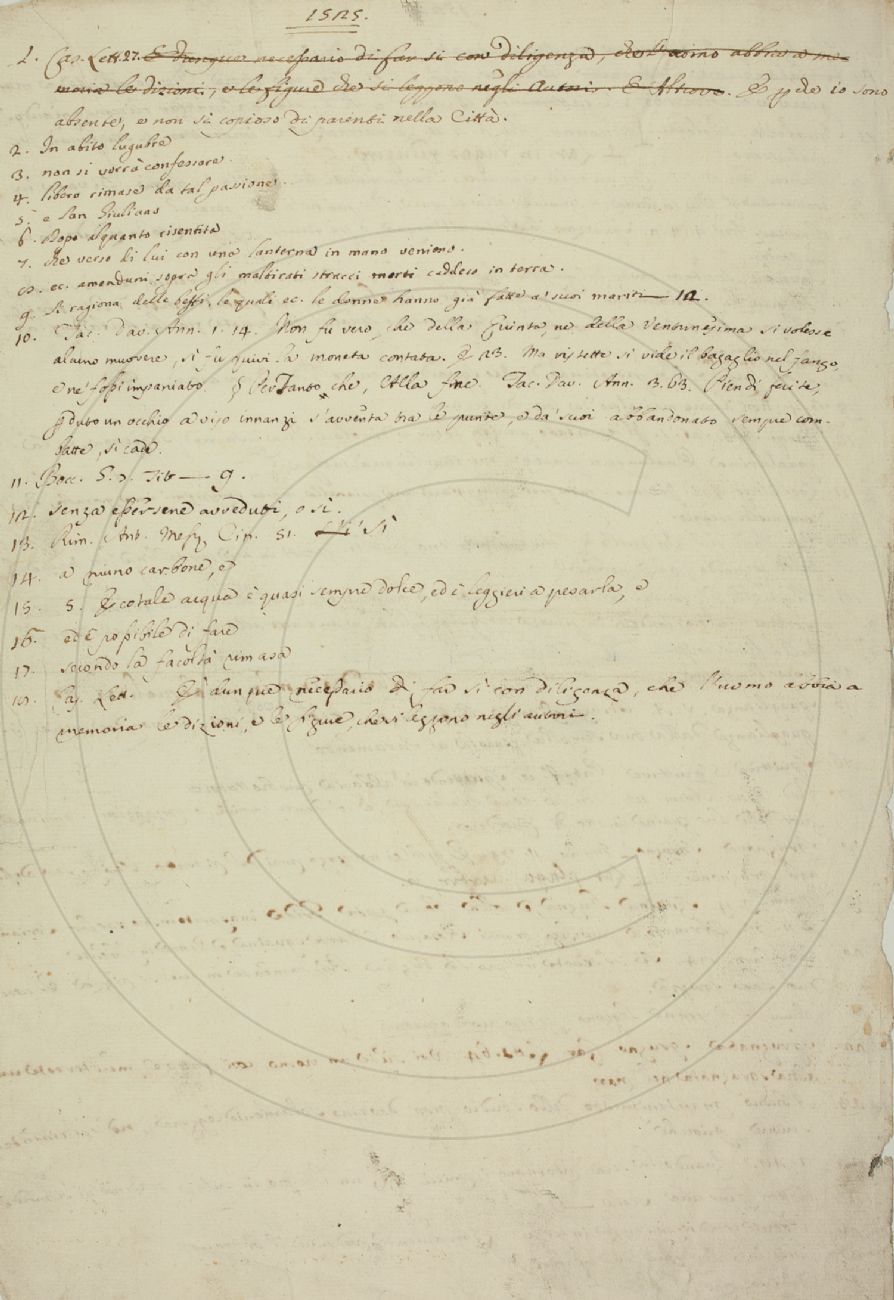 1525.
1. Cas. Lett. 27. E dunque necessario di far si con diligenza, che l'uomo abbia a me-
moria le dizioni, e le figure che si leggono negli Autori. E Altrove. E pche io sono
absente, e non sì copioso di parenti nella Città.
2. In abito lugubre
3. non si vorrà confessare
4. libero rimase da tal passione
5. e San Giuliano
6. Dopo alquanto risentita
7. che verso di lui con una lanterna in mano venieno.
8. ec. amenduni sopra gli maltirati stracci morti caddero in terra.
9. Si ragiona delle beffe, le quali ec. le donne hanno già fatte a' suoi mariti — 12.
10. Tac. Dav. Ann. 1. 14. Non fu vero, che della Quinta, ne della Ventunesima si volesse
alcuno muovere, sì fu quivi la moneta contata. E 23. Ma vistette si vide il bagaglio nel fango,
e ne' fossi impaniato. § Per Tanto che, Alla fine. Tac. Dav. Ann. 3. 63. Pien di ferite,
pduto un occhio a viso innanzi s'avventa tra le punte, e da' suoi abbandonato sempre com-
batte, sì cade.
11. Bocc. 5. 7. Tit — 9.
12. senza essersene avveduti, o sì.
13. Rim. Ant. Cin. 51. Si
14. a muno carbone, e
15. 8. E cotale acqua è quasi sempre dolce, ed è leggieri a pesarla, e
16. ed è possibile di fare
17. secondo la facoltà rimasa
18. Cas. Lett. E dunque necessario di far sì con diligenza, che l'uomo abbia a
memoria le dizioni, e le figure, che si leggono negli autori.